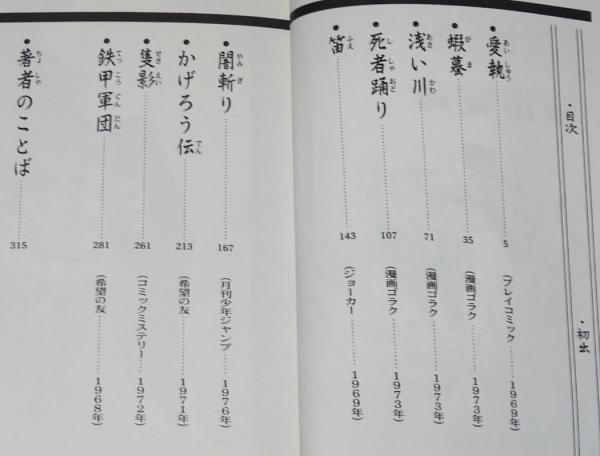 ・目次
・初出
●愛執 5 (プレイコミック 1969年)
●蝦蟇 35 (漫画ゴラク 1973年)
●浅い川 71 (漫画ゴラク 1973年)
●死者踊り 107 (漫画ゴラク 1973年)
●笛 143 (ジョーカー 1969年)
●闇斬り 167 (月刊少年ジャンプ 1976年)
●かげろう伝 213 (希望の友 1971年)
●隻影 261 (コミックミステリー 1972年)
●鉄甲軍団 281 (希望の友 1968年)
●著者のことば 315